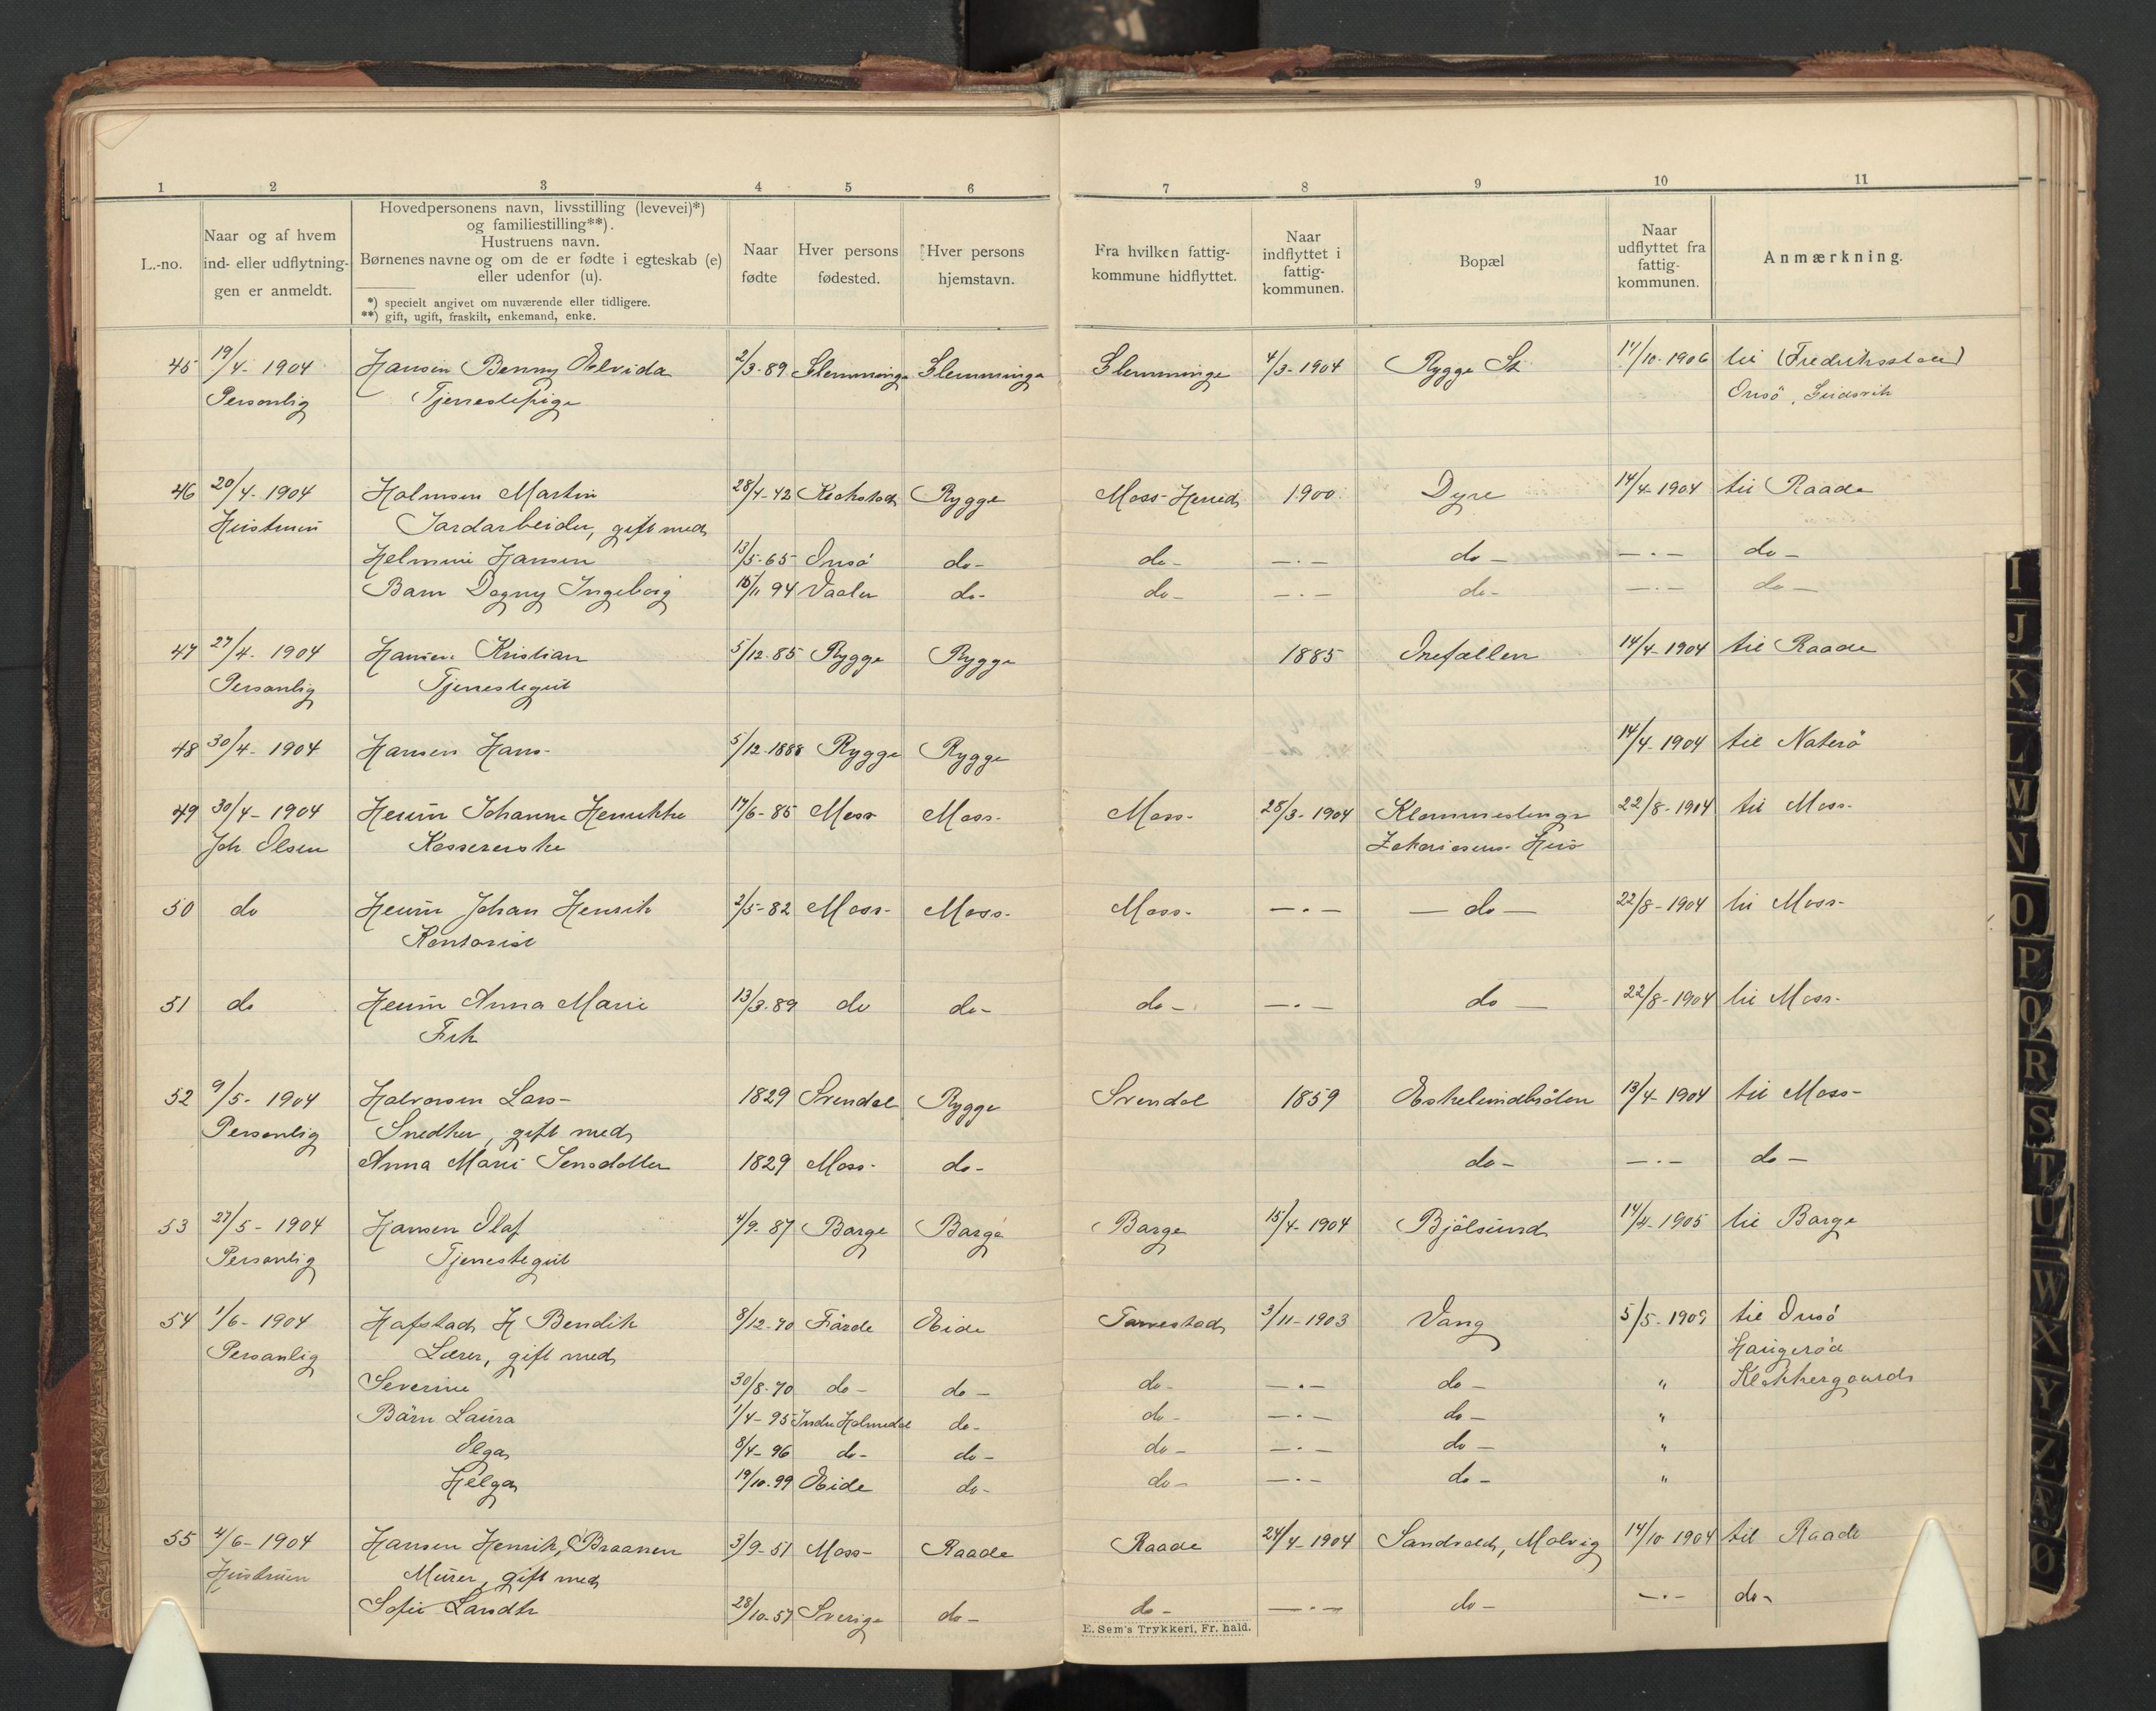 1 2 3 4 5 6 7 8 9 10 11
L.-no.
Naar og af hvem
ind- eller udflytnin-
gen er anmeldt.
Hovedpersonens navn, livsstilling (levevei)*)
og familiestilling**).
Hustruens navn.
Børnenes navne og om de er fødte i egteskab (e)
eller udenfor (u).
*) specielt angivet om nuværende eller tidligere.
**) gift, ugift, fraskilt, enkemand, enke.
Naar
fødte
Hver persons
fødested.
Hver persons
hjemstavn.
Fra hvilken fattig-
kommune hidflyttet.
Naar
indflyttet i
fattig-
kommunen.
Bopæl
Naar
udflyttet fra
fattig-
kommunen.
Anmærkning.
45 19/4- 1904 Hansen Benny Elvida 2/3-89 Glemminge Glemminge Glemminge 4/3-1904 Rygge St. 14/10-1906 til (Fredriksstad)
Personlig Tjenestepige Onsö,
46 20/4- 1904 Holmsen Martin 28/4-42 Rygge Moss Herred 1900 Dyre 14/4-1904 til Raade
Hustruen Jordarbeider, gift med
Helmine Hansen 13/5-65 Onsö do- do- —·— do- —·— do-
Barn Dagny Ingeborg 18/11 94 Vaaler do- do- —·— do- —·— do-
47 27/4- 1904 Hansen Kristian 5/12-85 Rygge Rygge 1885 Orefallen 14/4-1904 til Raade
Personlig Tjenestegut
48 30/4- 1904 Hansen Hans- 5/12-1888 Rygge Rygge 14/4-1904 til Naterö
49 30/4- 1904 Heum Johanne Henrikke 17/6-85 Moss Moss- Moss- 28/3-1904 22/8-1904 til Moss-
Joh Olsen Kassererske Zakariasens Hus
50 do Heum Johan Henrik 2/5-82 Moss- Moss- Moss- —·— — do — 22/8-1904 til Moss-
Kontorist
51 do Heum Anna Marie 13/3-89 do do- do- —·— do — 22/8-1904 til Moss-
Frk
52 9/5- 1904 Halvorsen Lars- 1829 Svendal Rygge Svendal 1859 13/4-1904 til Moss-
Personlig Snedker, gift med
Anna Marie Jensdatter 1829 Moss- do- do- —·— do-
53 27/5- 1904 Hansen Olaf 4/9-87 Barge Barge Barge 15/4-1904 Bjölsund 14/4-1905 til Barge
Personlig Tjenestegut
54 1/6- 1904 Hafstad H Bendik 8/12-70 Förde Eide Tanestad 3/11-1903 Vang 5/5-1909 til Onsö
Personlig Lærer, gift med Haugeröd
Severine 30/8-70 do- do- do- —·— do- " Klokkergaard
Börn Laura 1/4-95 Indre Holmedal do- do- —·— do- "
Olga 8/4-96 do- do- do- —·— do- "
Helga 19/10-99 Eide do- do- —·— do- "
55 4/6- 1904 Hansen Henrik, Braanen 3/9-51 Moss- Raade Raade 24/4-1904 Sandvold, Molvig 14/10 1904 til Raade
Hustruen Murer, gift med
Sofie Landth 28/10-57 Sverige do- do- —·— do- —·— do-
E. Sem's Trykkeri, Fr. hald.
I
J
K
L
M
N
O
P
Q
R
S
T
U
W
X
Y
Z
Ø